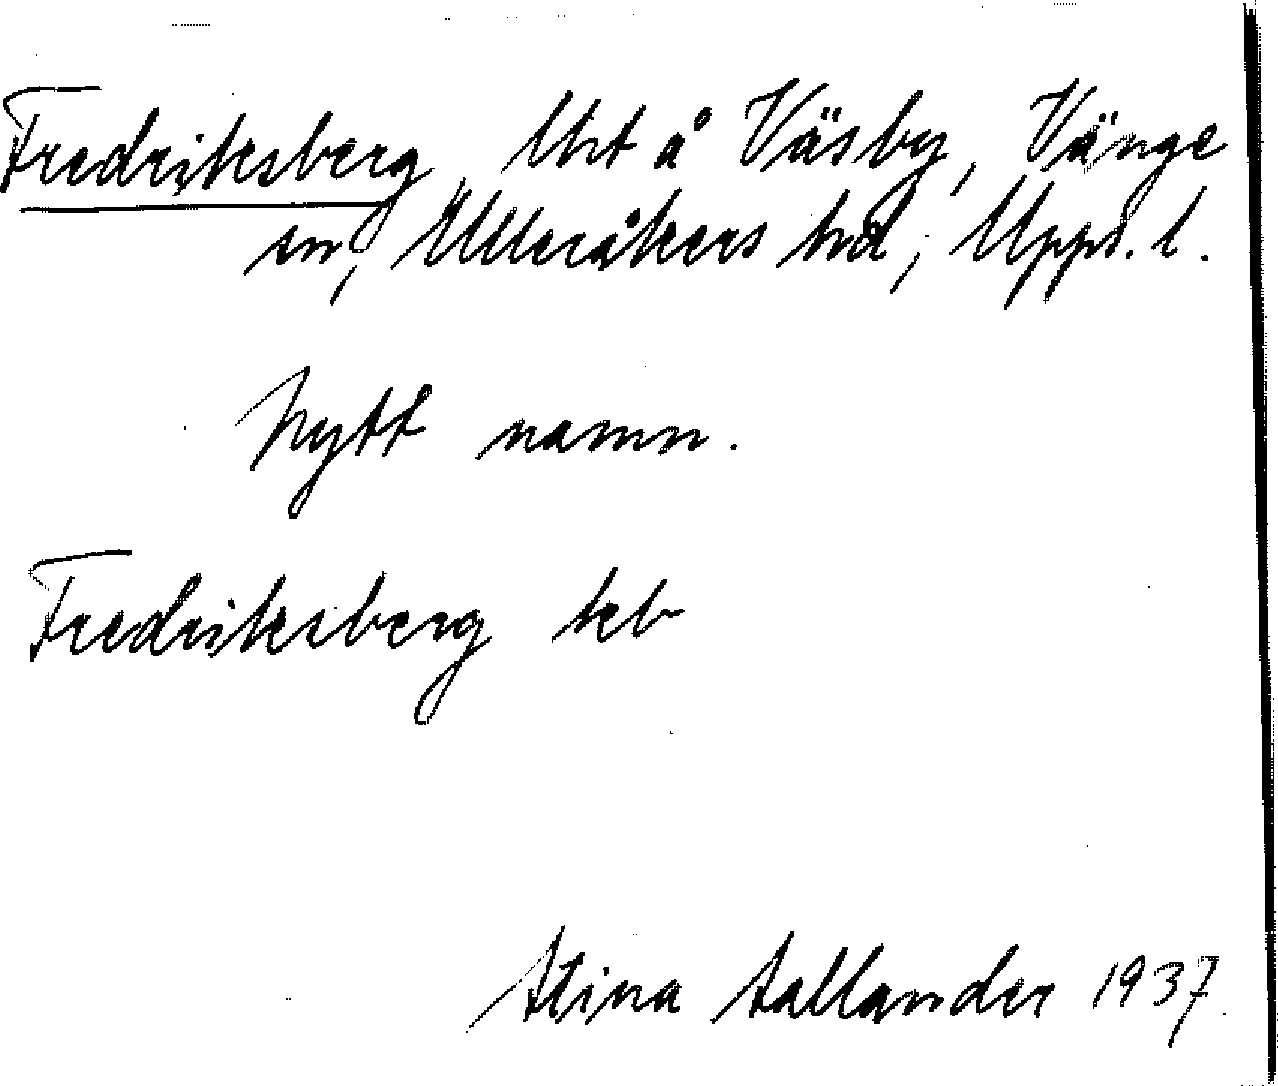 Fredriksberg, lht å Väsby, Vänge
sn, Ulleråkers hd, Upps. l.
Nytt namn.
Fredriksberg kb
Stina Sallander 1937.